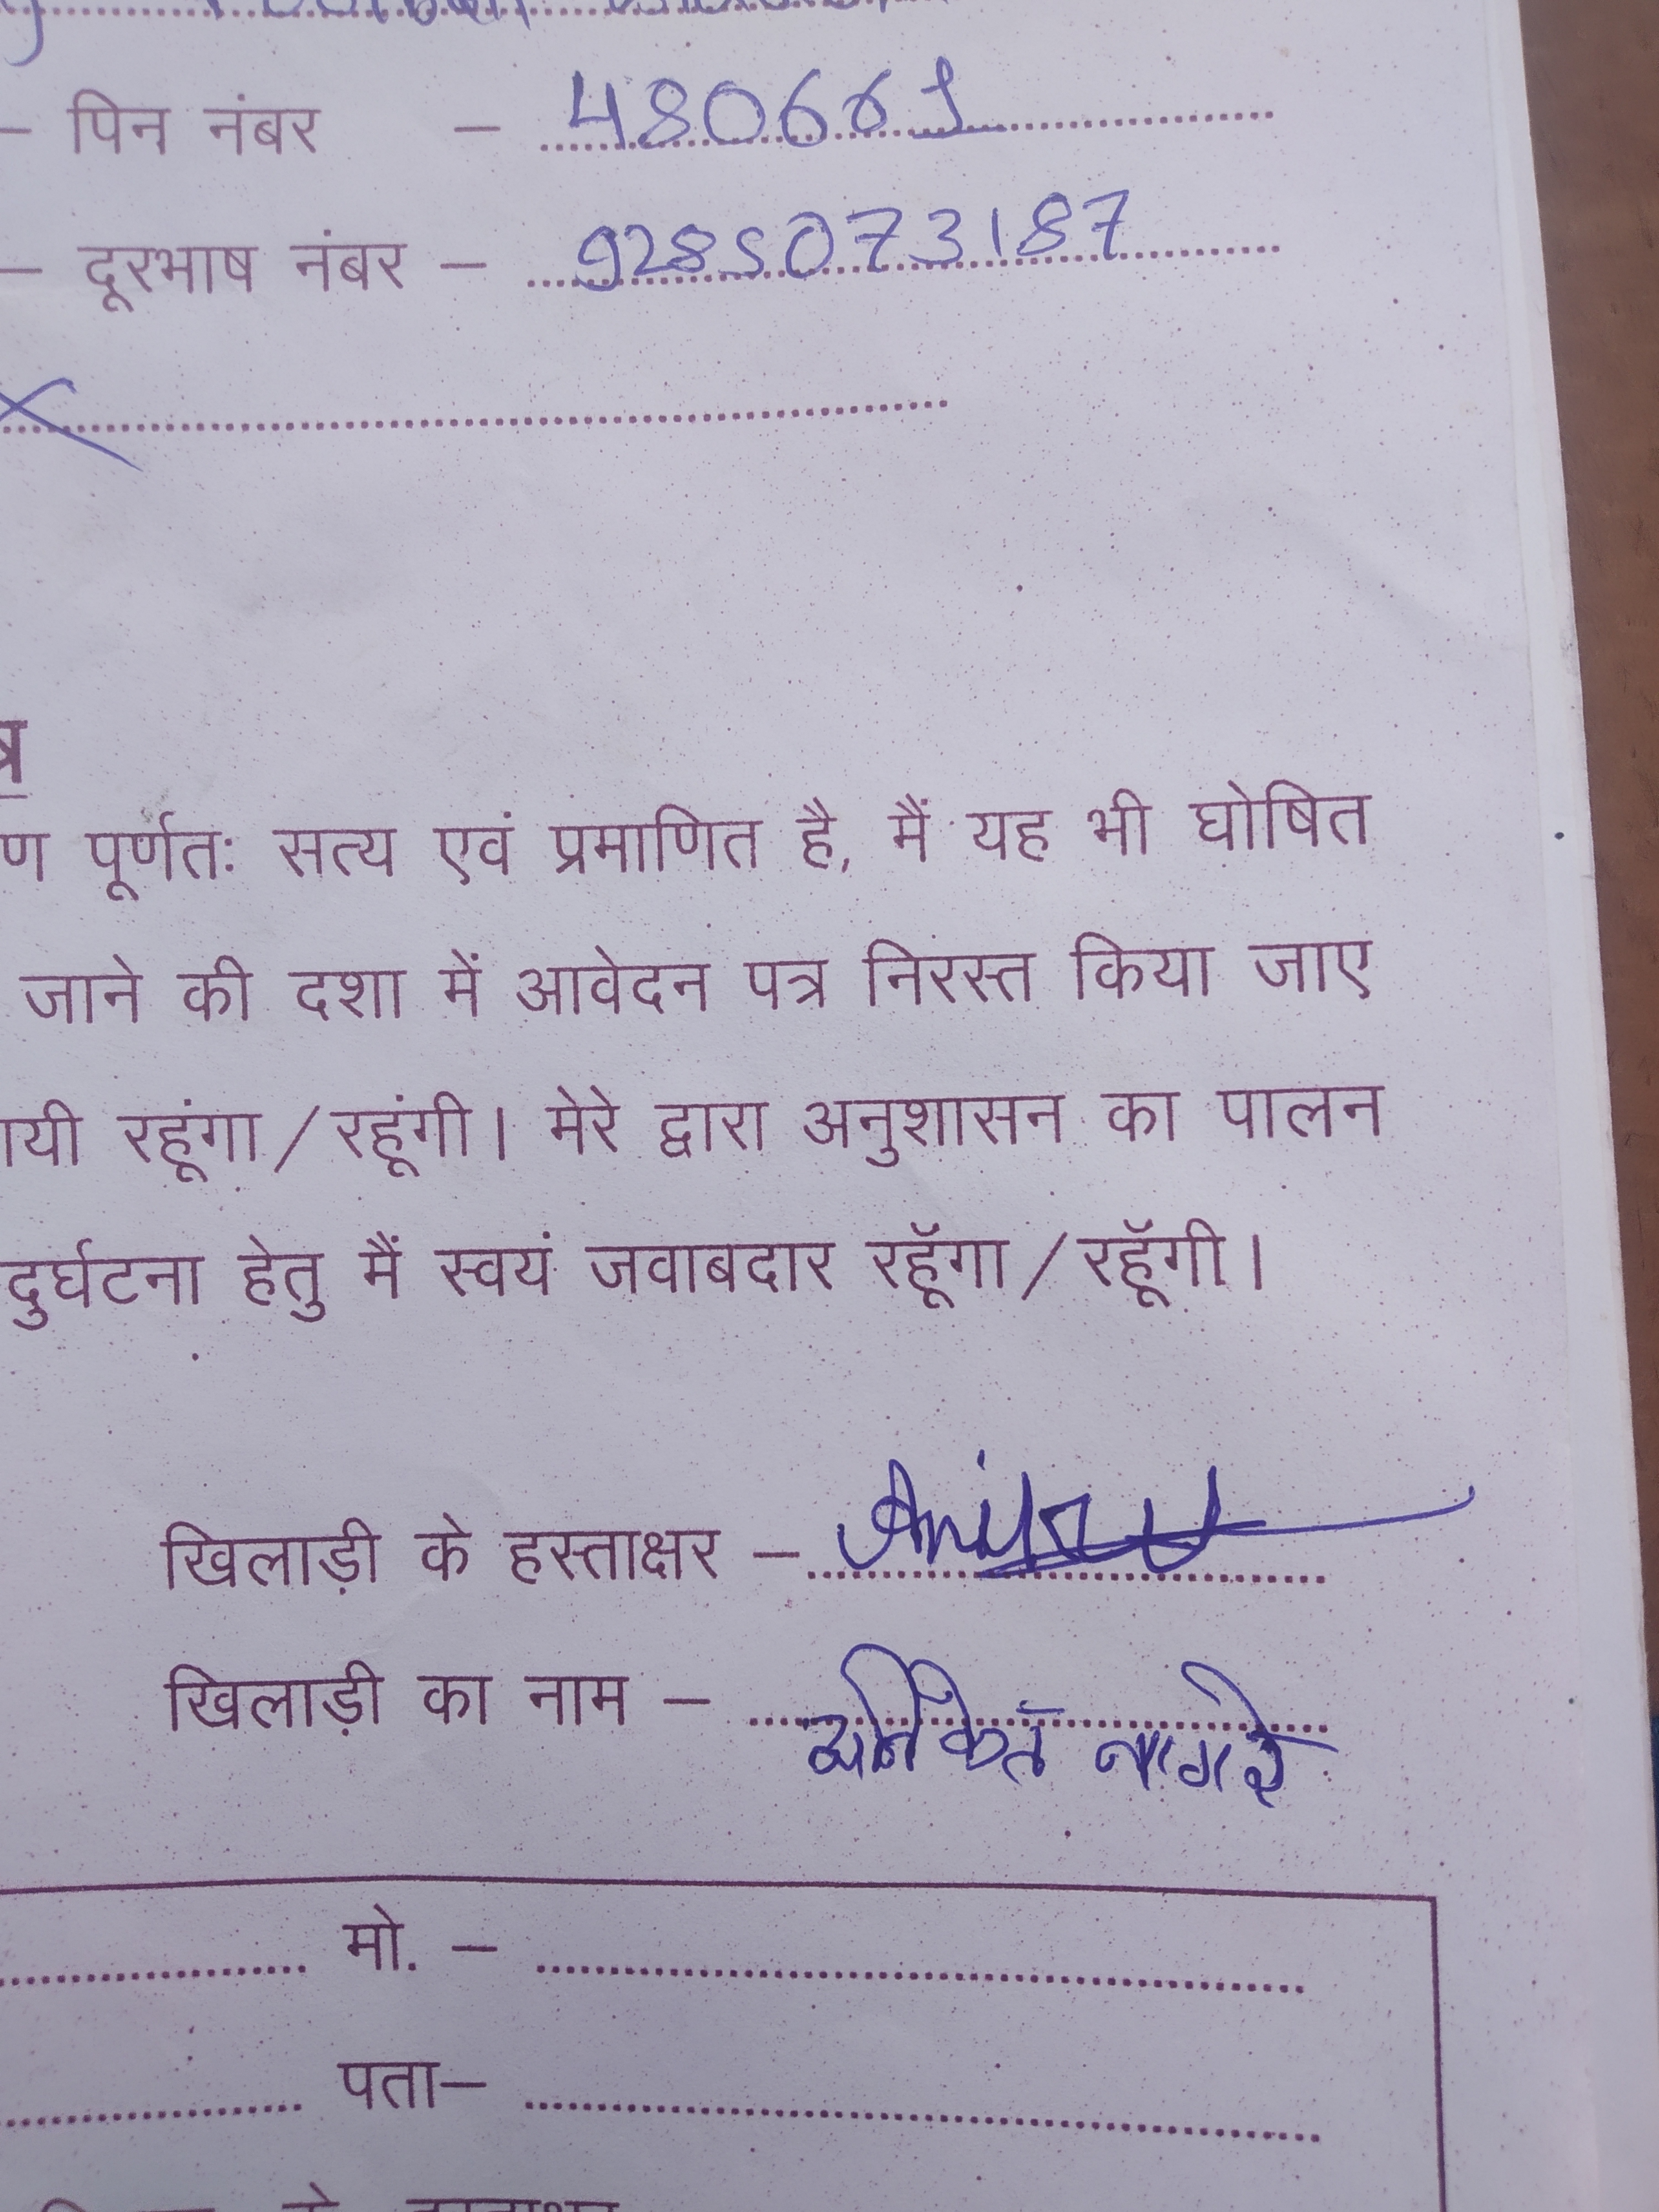 – पिन नंबर – 480661
– दूरभाष नंबर – 9285073187
त्र
ण पूर्णतः सत्य एवं प्रमाणित है, मैं यह भी घोषित
जाने की दशा में आवेदन पत्र निरस्त किया जाए
ायी रहूंगा/रहूंगी। मेरे द्वारा अनुशासन का पालन
दुर्घटना हेतु मैं स्वयं जवाबदार रहूॅगा/रहूॅगी।
खिलाड़ी के हस्ताक्षर –
खिलाड़ी का नाम – अनिकेत नागरे
मो. –
पता–